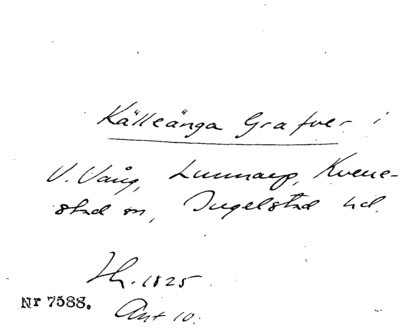 Källeänga Grafver i
V. Vång, Lunnarp, Kverre-
stad sn, Ingelstad hd.
Th. 1825.
Nr 7588. Ant 10.